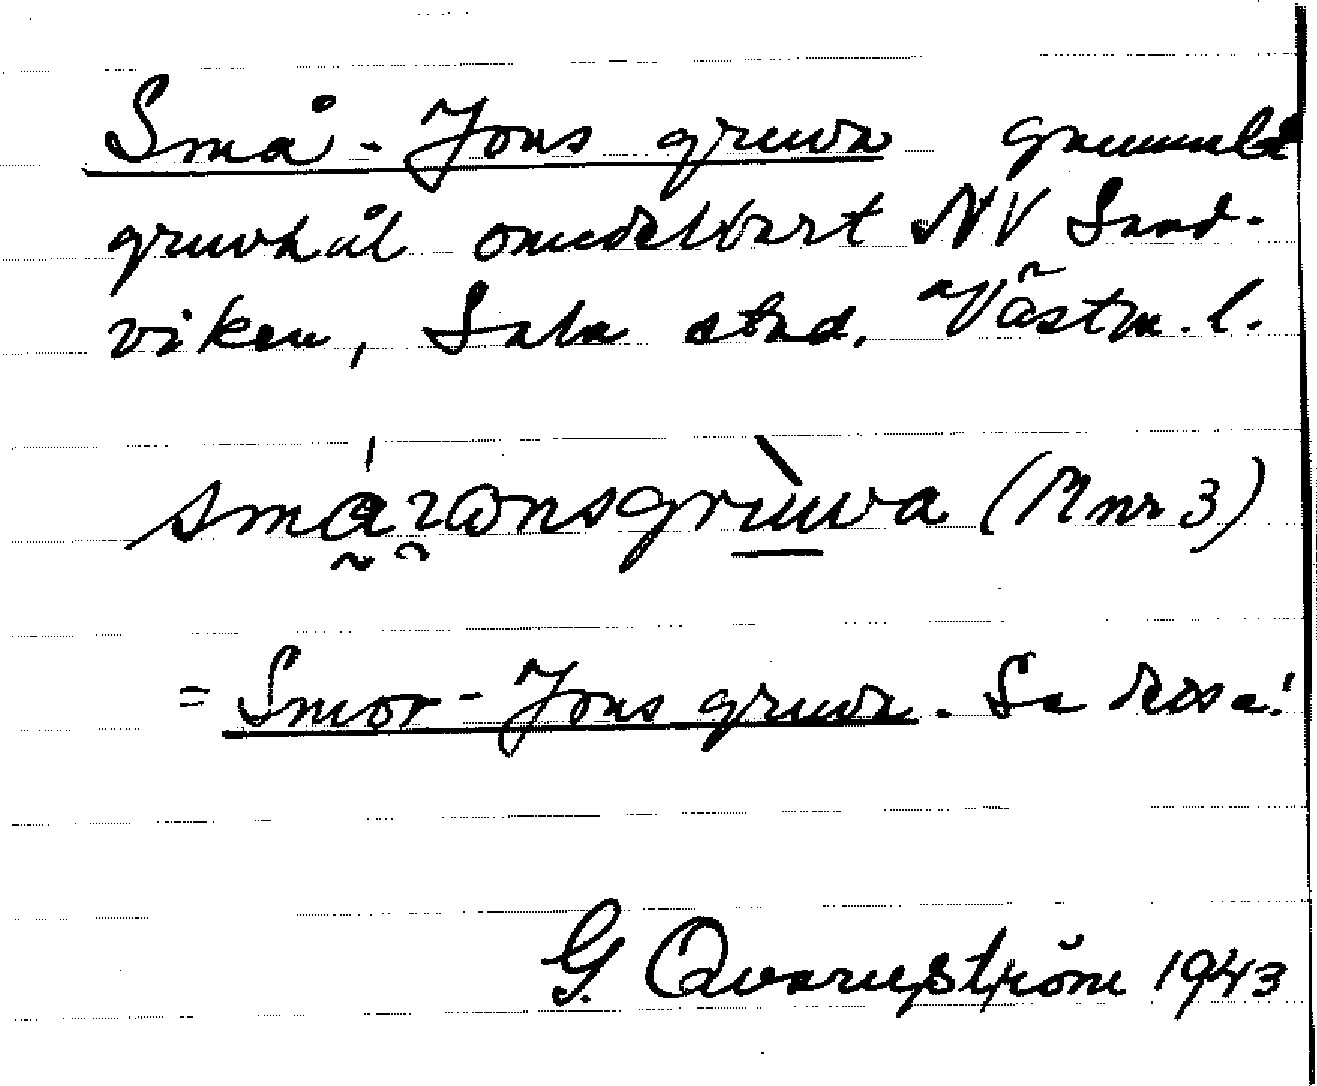 Små-Jons gruva gammalt
gruvhål omedelbart NV Sand-
viken, Sala stad. Västm. l.
(M nr 3)
= Smör-Jons gruva. Se dessa!
G. Qvarnström 1943